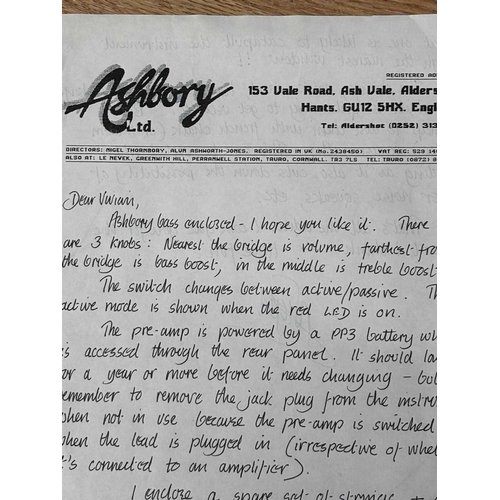 Ashbory
Ltd.
REGISTERED AD
153 Vale Road, Ash Vale, Alders
Hants. GU12 5HX. Engl
Tel: Aldershot (0252) 313
DIRECTORS: NIGEL THORNBORY, ALUN ASHWORTH-JONES. REGISTERED IN UK (No.2438450) VAT REG: 529 14
ALSO AT: LE NEVEK, GREENWITH HILL, PERRANWELL STATION, TRURO, CORNWALL. TR3 7LS TEL: TRURO (0872) 8
Dear Vivian,
Ashbory bass enclosed - I hope you like it. There
are 3 knobs: Nearest the bridge is volume, farthest fro
the bridge is bass boost, in the middle is treble boost
The switch changes between active/passive. Th
active mode is shown when the red LED is on.
The pre-amp is powered by a PP3 battery wh
is accessed through the rear panel. It should la
or a year or more before it needs changing - but
emember to remove the jack plug from the instru
hen not in use because the pre-amp is switched
hen the lead is plugged in (irrespective of whe
t's connected to an amplifier).
I enclose a spare set of strings